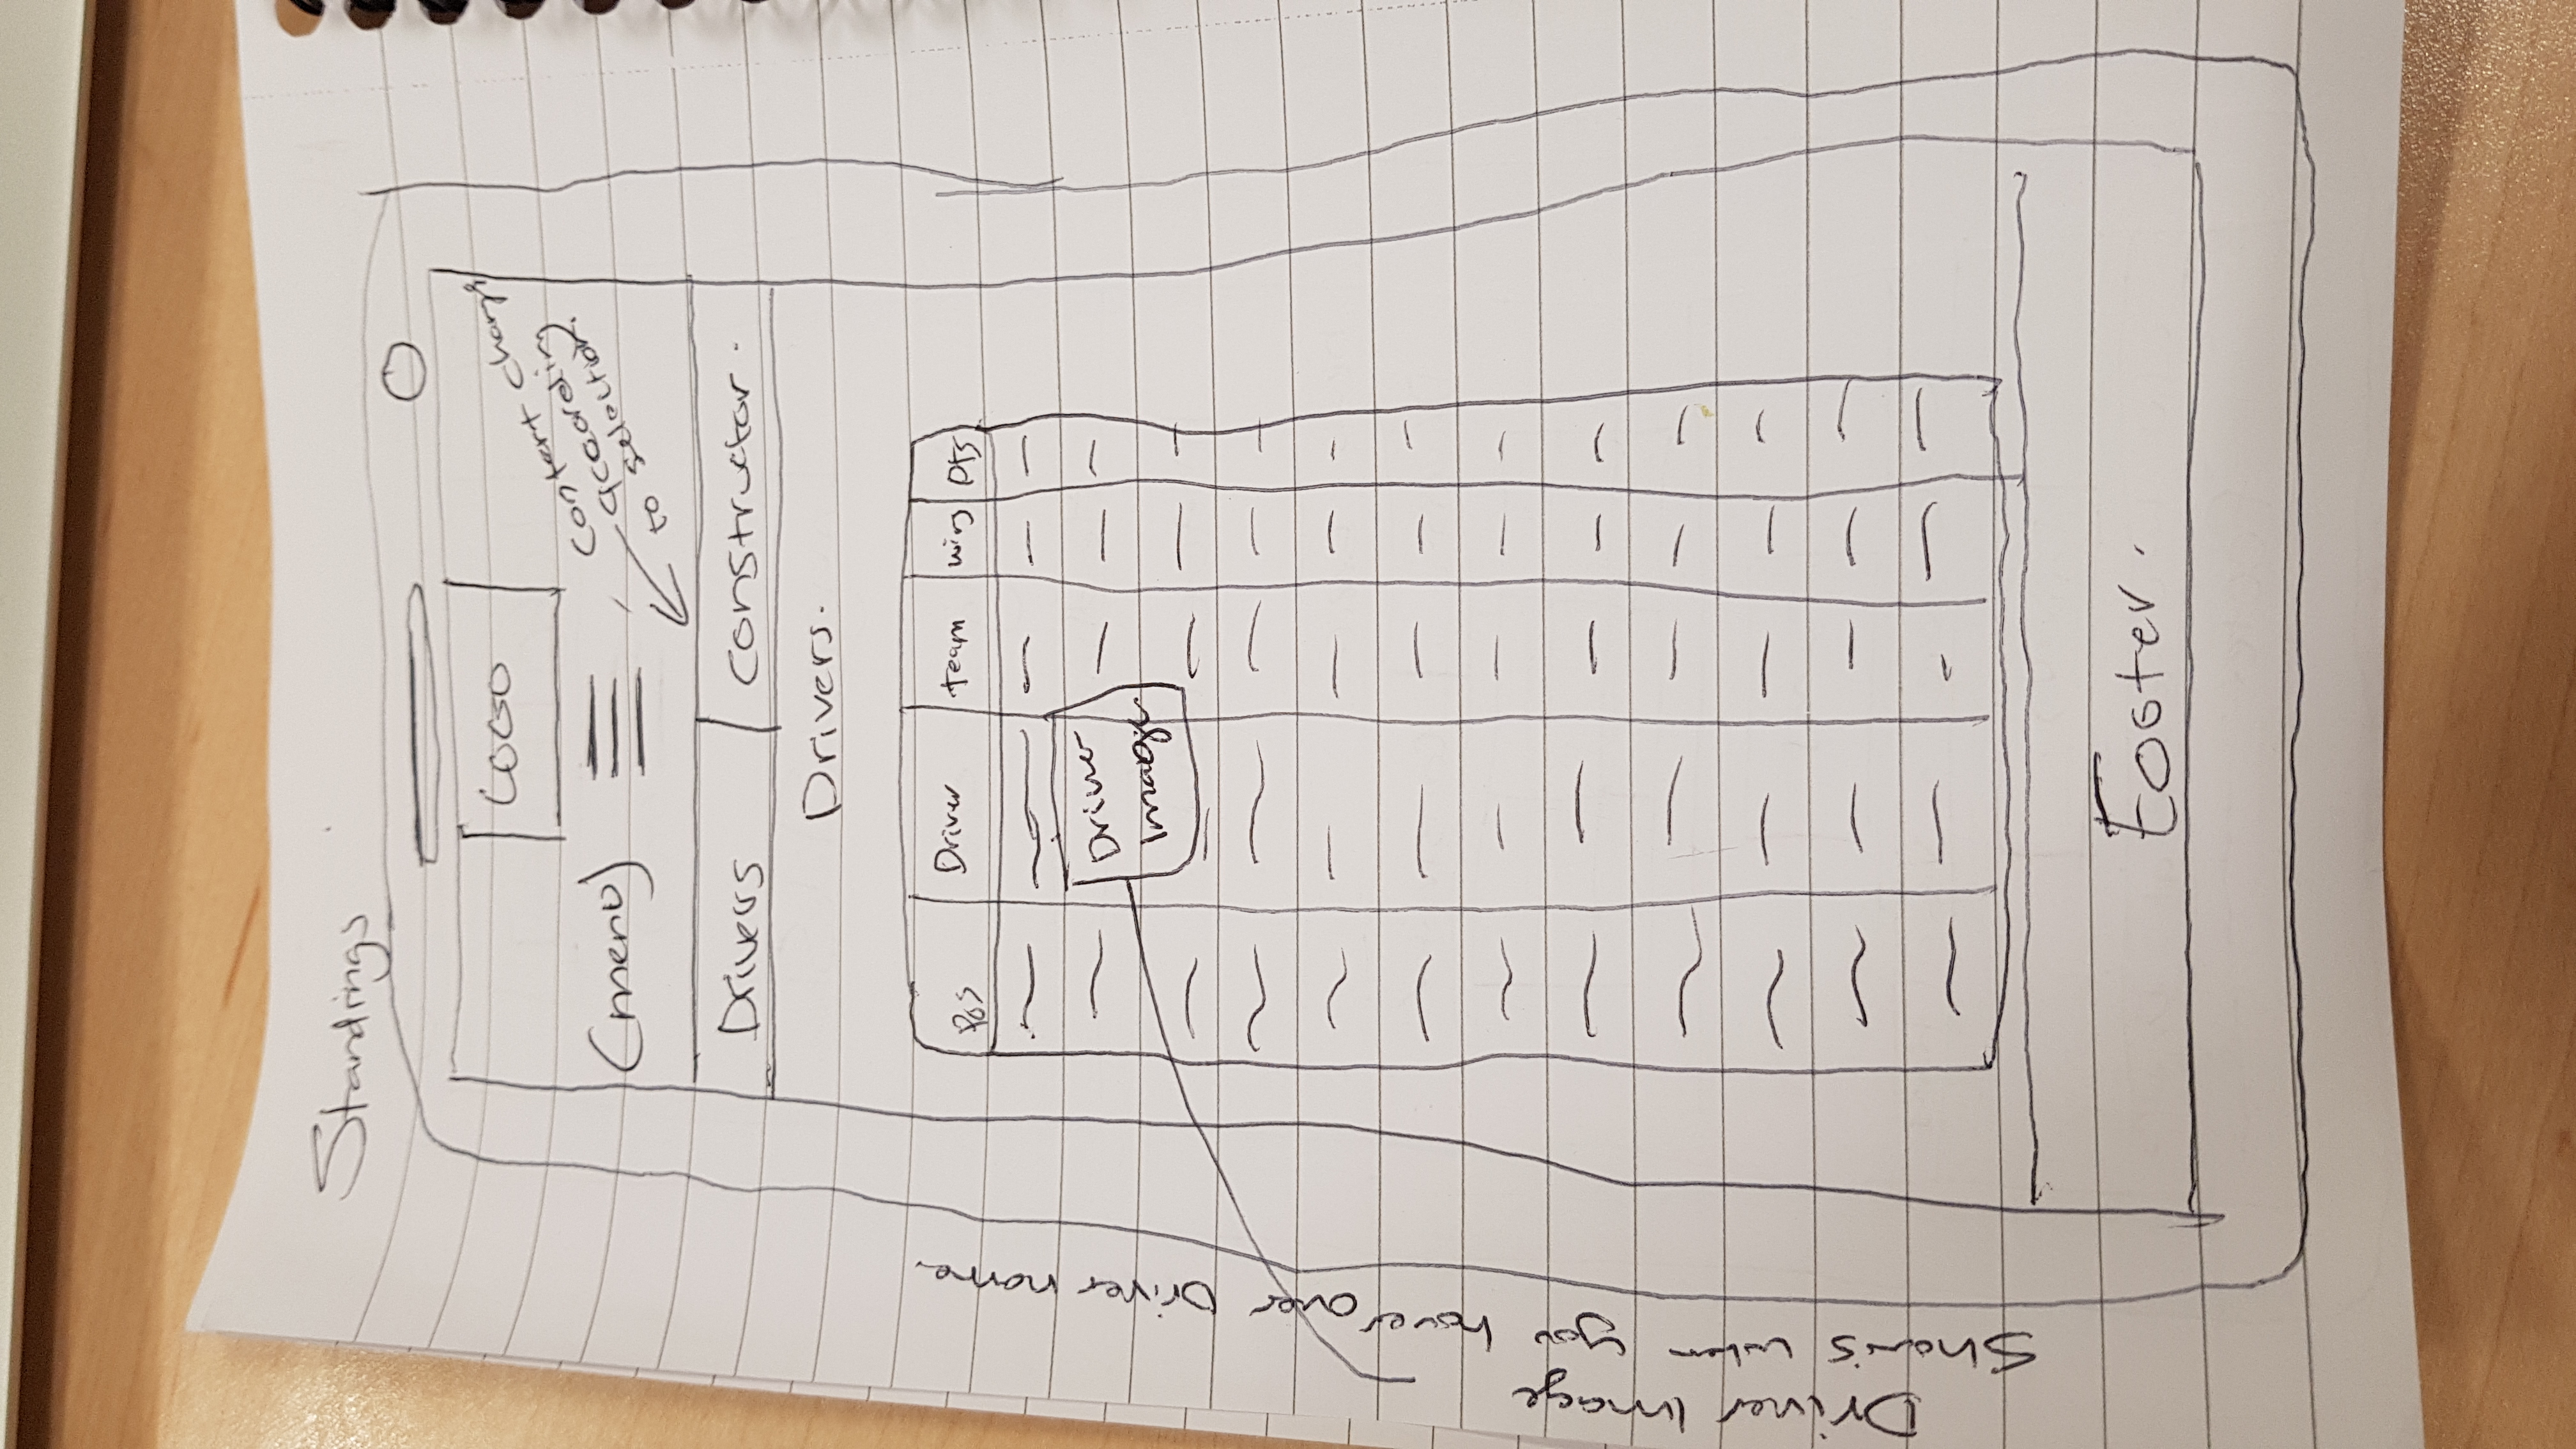 Standings
LOGO
(menu)
Content changes
according
to selection.
Drivers
constructor.
Drivers.
Pos
Driver
team
wins
pts
Driver
Image
Driver Image
Shows when you hover over Driver name
Footer.